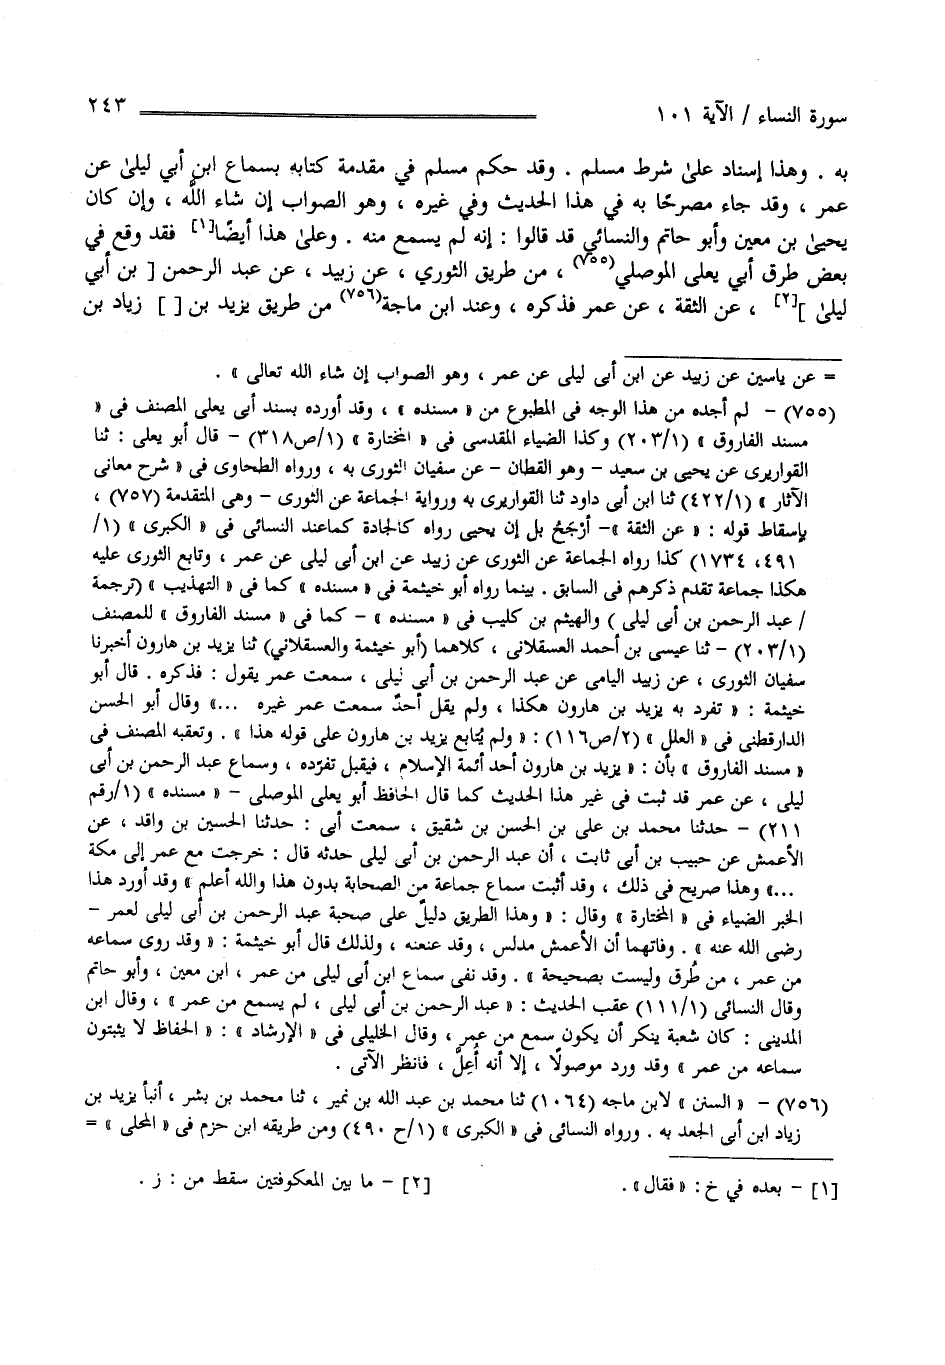 سورة النساء / الآية ١٠١
٢٤٣
به . وهذا إسناد علىٰ شرط مسلم . وقد حكم مسلم في مقدمة كتابه بسماع ابن أبي ليلىٰ عن
عمر ، وقد جاء مصرحًا به في هذا الحديث وفي غيره ، وهو الصواب إن شاء اللَّه ، وإن كان
يحيىٰ بن معين وأبو حاتم والنسائي قد قالوا : إنه لم يسمع منه . وعلىٰ هذا أيضًا[١] فقد وقع في
بعض طرق أبي يعلى الموصلي(٧٥٥) ، من طريق الثوري ، عن زبيد ، عن عبد الرحمن [ بن أبي
ليلىٰ ][٢] ، عن الثقة ، عن عمر فذكره ، وعند ابن ماجة(٧٥٦) من طريق يزيد بن [ ] زياد بن
= عن ياسين عن زبيد عن ابن أبى ليلى عن عمر ، وهو الصواب إن شاء الله تعالى » .
(٧٥٥) - لم أجده من هذا الوجه فى المطبوع من « مسنده » ، وقد أورده بسند أبى يعلى المصنف فى «
مسند الفاروق » (٢٠٣/١) وكذا الضياء المقدسى فى « المختارة » (١/ص٣١٨) - قال أبو يعلى : ثنا
القواريرى عن يحيى بن سعيد - وهو القطان - عن سفيان الثورى به ، ورواه الطحاوى فى « شرح معانى
الآثار » (٤٢٢/١) ثنا ابن أبى داود ثنا القواريرى به ورواية الجماعة عن الثورى - وهى المتقدمة (٧٥٧) ،
بإسقاط قوله : « عن الثقة »- أرْجَحُ بل إن يحيى رواه كالجادة كماعند النسائى فى « الكبرى » (١/
٤٩١، ١٧٣٤) كذا رواه الجماعة عن الثورى عن زبيد عن ابن أبى ليلى عن عمر ، وتابع الثورى عليه
هكذا جماعة تقدم ذكرهم فى السابق . بينما رواه أبو خيثمة فى « مسنده » كما فى « التهذيب » (ترجمة
/ عبد الرحمن بن أبى ليلى ) والهيثم بن كليب فى « مسنده » - كما فى « مسند الفاروق » للمصنف
(٢٠٣/١) - ثنا عيسى بن أحمد العسقلانى ، كلاهما (أبو خيثمة والعسقلاني) ثنا يزيد بن هارون أخبرنا
سفيان الثورى ، عن زبيد اليامى عن عبد الرحمن بن أبى ليلى ، سمعت عمر يقول : فذكره . قال أبو
خيثمة : « تفرد به يزيد بن هارون هكذا ، ولم يقل أحدٌ سمعت عمر غيره ...» وقال أبو الحسن
الدارقطنى فى « العلل » (٢/ص١١٦) : « ولم يُتابع يزيد بن هارون على قوله هذا » . وتعقبه المصنف فى
« مسند الفاروق » بأن : « يزيد بن هارون أحد أئمة الإسلام ، فيقبل تفرّده ، وسماع عبد الرحمن بن أبى
ليلى ، عن عمر قد ثبت فى غير هذا الحديث كما قال الحافظ أبو يعلى الموصلى - « مسنده » (١/رقم
٢١١) - حدثنا محمد بن على بن الحسن بن شقيق ، سمعت أبى : حدثنا الحسين بن واقد ، عن
الأعمش عن حبيب بن أبى ثابت ، أن عبد الرحمن بن أبى ليلى حدثه قال : خرجت مع عمر إلى مكة
...» وهذا صريح فى ذلك ، وقد أثبت سماع جماعة من الصحابة بدون هذا والله أعلم » وقد أورد هذا
الخبر الضياء فى « المختارة » وقال : « وهذا الطريق دليلٌ على صحبة عبد الرحمن بن أبى ليلى لعمر -
رضى الله عنه » . وفاتهما أن الأعمش مدلس ، وقد عنعنه ، ولذلك قال أبو خيثمة : « وقد روى سماعه
من عمر ، من طُرق وليست بصحيحة » . وقد نفى سماع ابن أبى ليلى من عمر ، ابن معين ، وأبو حاتم
وقال النسائى (١١١/١) عقب الحديث : « عبد الرحمن بن أبى ليلى ، لم يسمع من عمر » ، وقال ابن
المدينى : كان شعبة ينكر أن يكون سمع من عمر ، وقال الخليلى فى « الإرشاد » : « الحفاظ لا يثبتون
سماعه من عمر » وقد ورد موصولًا ، إلا أنه أُعِلَّ ، فانظر الآتى .
(٧٥٦) - « السنن » لابن ماجه (١٠٦٤) ثنا محمد بن عبد الله بن نمير ، ثنا محمد بن بشر ، أنبأ يزيد بن
زياد ابن أبى الجعد به . ورواه النسائى فى « الكبرى » (١/ح ٤٩٠) ومن طريقه ابن حزم فى « المحلى » =
[١] - بعده في خ : « فقال» .
[٢] - ما بين المعكوفتين سقط من : ز .